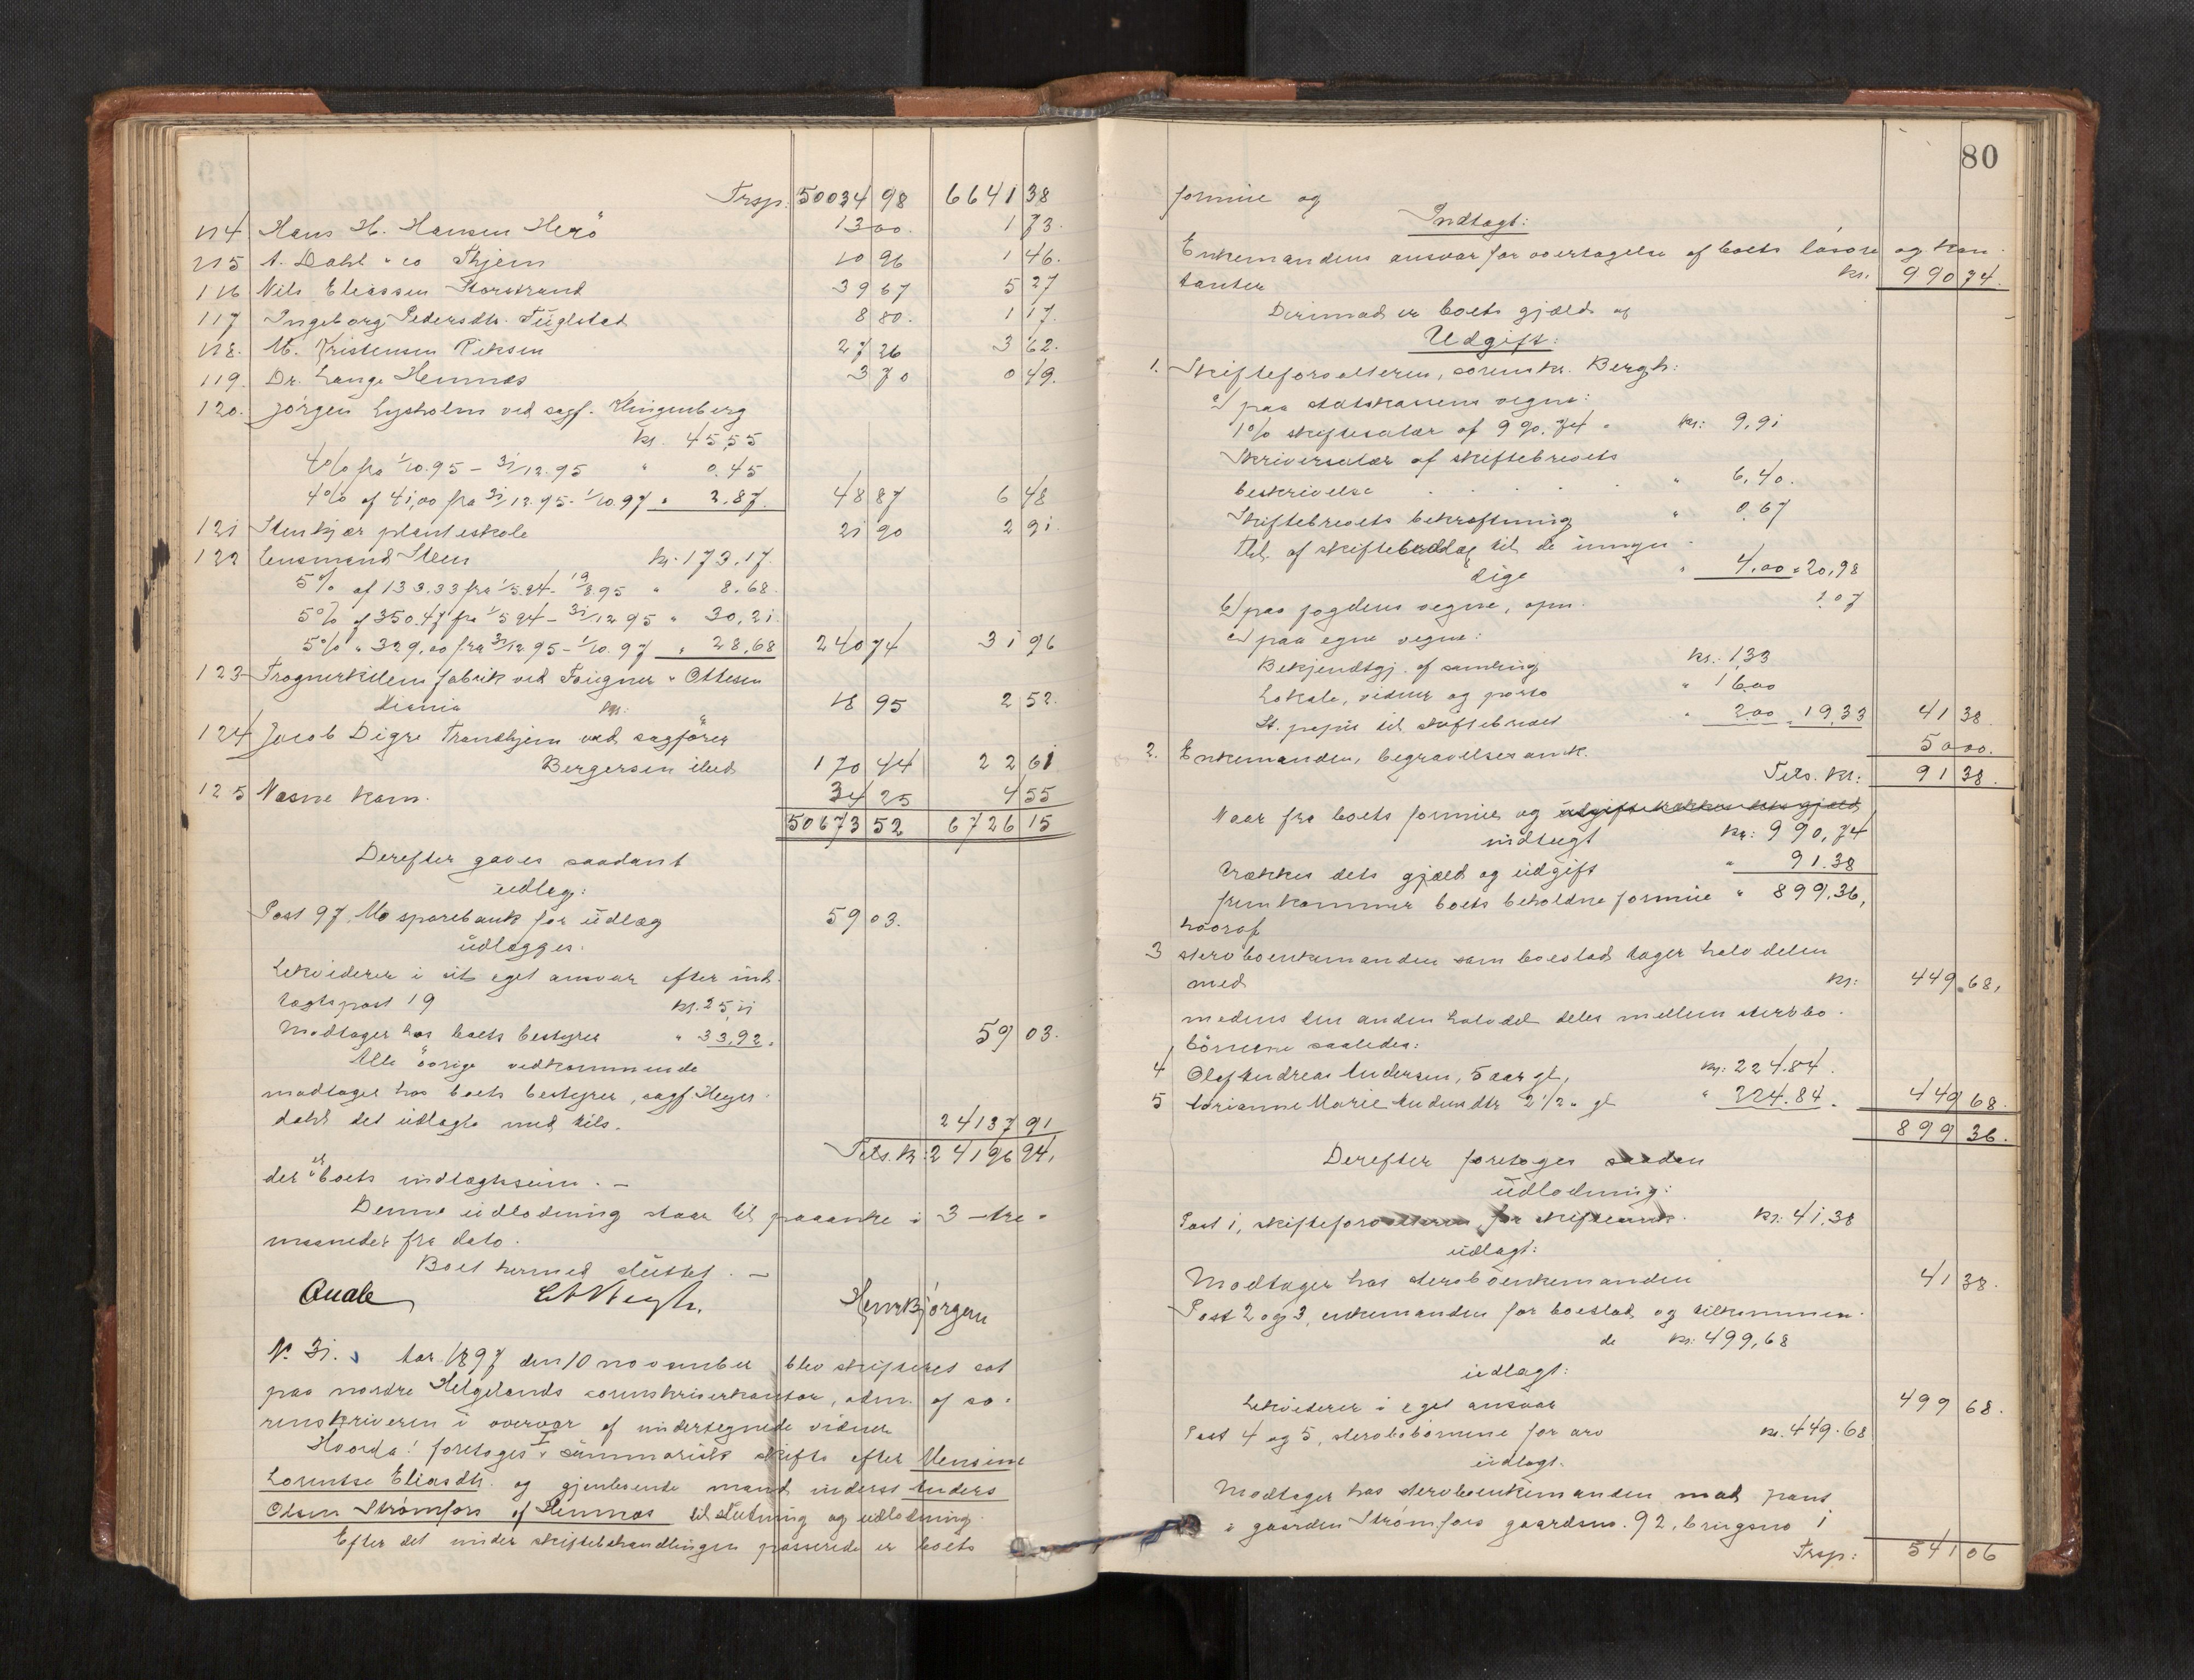 Trsp. 50034 98 6641 38
114 Hans H. Hansen Herö 13 00. 1 73.
115 A. Dahl & co Thjem 10 96 1 46.
116 Nils Eliassen Storstrand 39 67 5 27
117 Ingeborg Pedersdtr. Fuglstad 8 80. 1 17.
118. M. Kristensen 27 26 3 62.
119. Dr. Lange Hemnes 3 70 0 49.
120. Jörgen Lysholm ved sagf. Klingenberg
kr. 45,55
4% fra 1/10.95 – 31/12.95 " 0.45
4% of 41,00 fra 31/12.95 - 1/10 97 " 2.87. 48 87 6 48
121 Stenkjær planteskole 21 90 2 91.
122 Lensmand Steen kr. 173.17.
5% af 133.33 fra 1/5.94 - 19/8.95 " 8.68.
5% af 350.47 fra 1/5 94 – 31/12 95 " 30,21
5% " 329,00 fra 31/12 95 – 1/10. 97 " 28,68 240 74 31 96
123 Trognerkilens fabrik ved Faigner & Ottesen
Xiania kr: 18 95 2 52.
124 Jacob Digre Trondhjem ved sagförer
Bergersen ibid 170 44 22 61
125 Næsne kom. 34 25 4 55
50673 52 6726 15
Derefter gaves saadant
udlæg:
Post 97. Mo sparebank for udlæg 59 03.
udlægges:
Likviderer i sit eget ansvar efter ind-
tægtspost 19 kr. 25,11
Modtager hos boets bestyrer " 33,92.
59 03.
Alle övrige vedkommende
modtager hos boets bestyrer, sagf. Heyer-
dahl det udlagte med tils. 24137 91
Tils. kr. 24196 94,
der er boets indtægtssum. –
Denne udlodning staar til paaanke i 3 – tre –
maaneder fra dato.
Boet hermed sluttet. –
Quale Henr Bjørgen
No. 31. Aar 1897 den 10 november blev skifteret sat
paa nordre Helgelands sorenskriverkontor, adm. af so-
renskriveren i overvær af undertegnede vidner
Hvorda: foretoges I summarisk skifte efter Mensine
Lorentse Eliasdtr. og gjenlevende mand inderst Anders
Olsen Strømfors af Hemnes til slutning og udlodning.
Efter det under skiftebehandlingen passerede er boets
80
formue og
Indtægt:
Enkemandens ansvar for overtagelse af boets lösöre og kon-
tanter kr. 990 74.
Derimod er boets gjæld og
Udgift:
1. Skifteforvalteren, sorenskr. Bergh:
a) paa statskassens vegne:
1% skiftesalær af 990.74 " kr: 9,91
Skriversalær af skiftebrevets
beskrivelse " 6,40.
Skiftebrevets bekræftning " 0,67
Thl. af skifteudlæg til de umyn-
dige " 4,00 = 20,98
b) paa fogdens vegne, opn. 1.07
c) paa egne vegne:
Bekjendtgj. af samling kr.: 1,33
Lokale, vidner og porto " 16,00
St. papir til skiftebrevet " 2,00 19,33 41 38.
2. Enkemanden, begravelsesomk. 50 00.
Tils. kr: 91 38.
Naar fra boets formue og
indtægt kr: 990,74
trækkes dets gjæld og udgift " 91.38
fremkommer boets beholdne formue " 899.36,
hvoraf
3 sterboenkemanden som boeslod tager halvdelen
med kr: 449 68,
medens den anden halvdel deles mellem sterbo-
börnene saaledes:
4 Olaf Andreas Andersen, 5 aar gl, kr: 224.84.
5 Arianne Marie Andersdtr 2 1/2 " gl " 224.84. 449 68.
899 36.
Derefter foretoges saadan
udlodning:
Post 1, skifteforvalteren for skifteomk. kr: 41,38
udlagt:
Modtager hos sterboenkemanden 41 38.
Post 2 og 3, enkemanden for boeslod og tilkommen-
de kr: 499,68
udlagt:
Likviderer i eget ansvar 499 68.
Post 4 og 5, sterbobörnene for arv kr. 449.68
udlagt.
Modtager hos sterboenkemanden mod pant
i gaarden Strømfors gaardsno. 92, brugsno 1
Trsp: 541 06